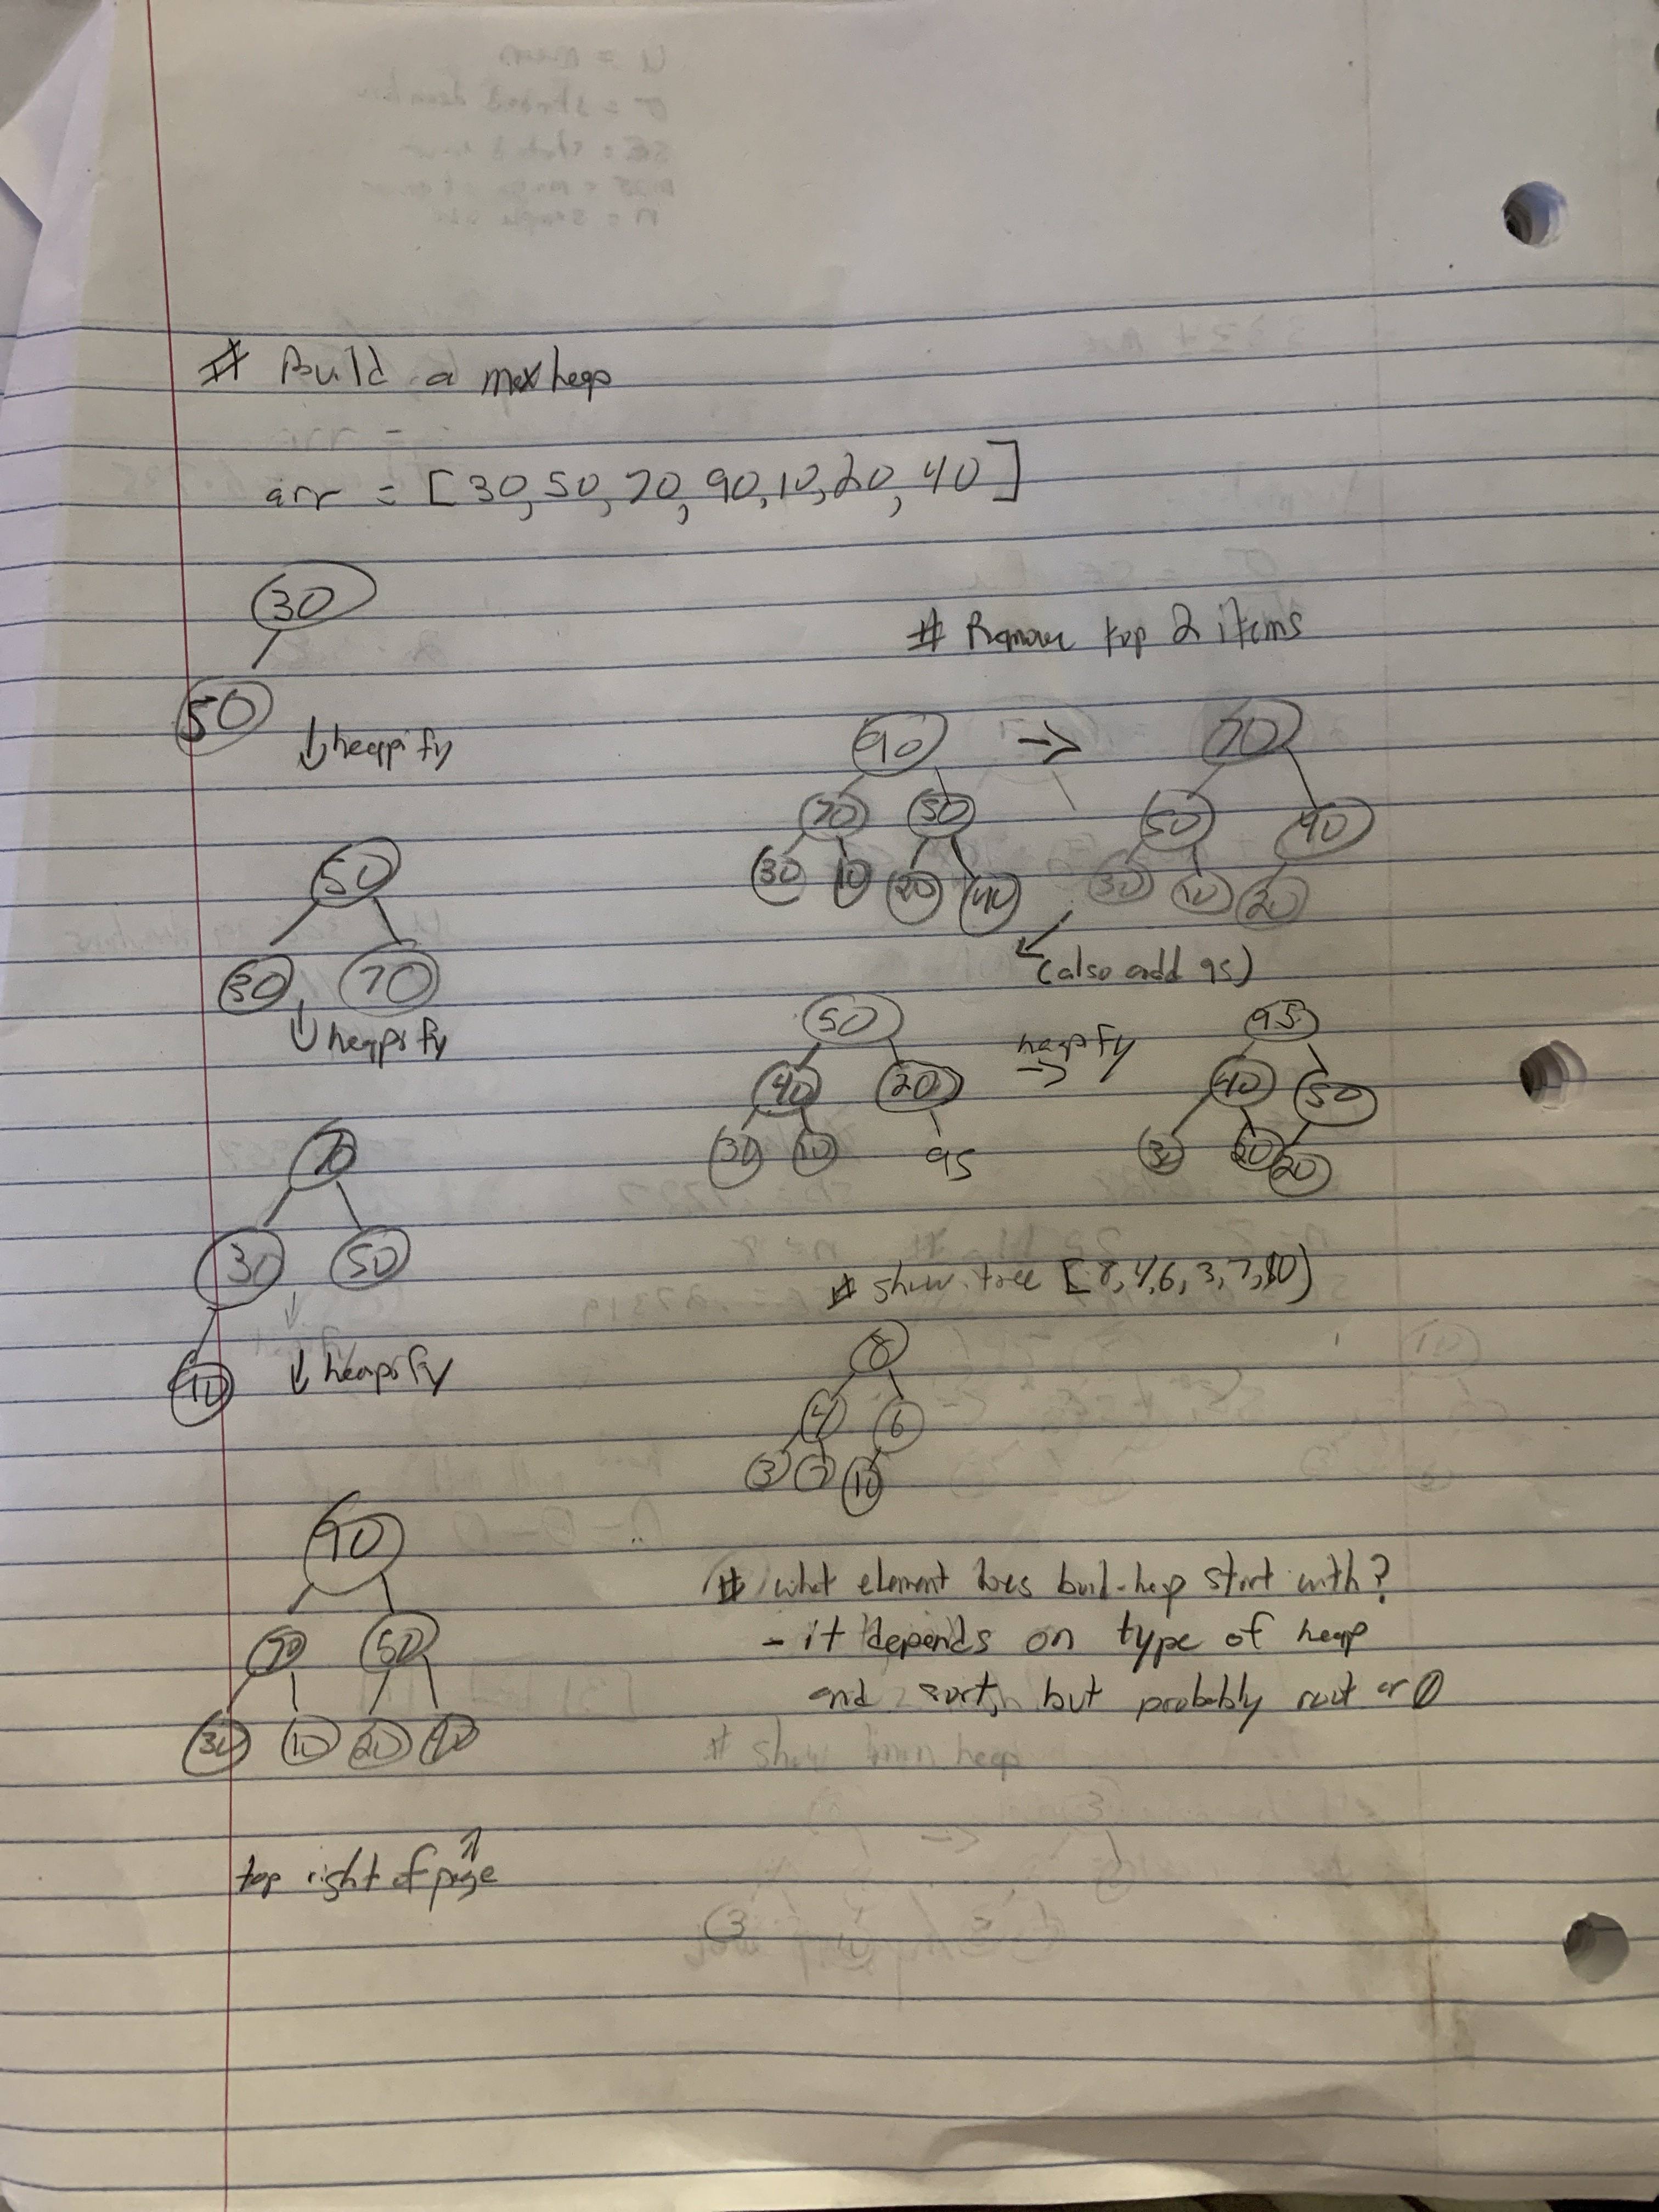 # Build a max heap
arr = [30, 50, 70, 90, 10, 20, 40]
30
50
↓ heapify
50
30 70
↓ heapify
70
30 50
90
↓ heapify
90
70 50
30 10 20 40
top right of page
# Remove top 2 items
90 -> 70
70 50 50 40
30 10 20 40 30 10 20
(also add 95)
50 heapify -> 95
40 20 40 50
30 10 95 30 20 20
# Show tree [8, 4, 6, 3, 7, 10)
8
4 6
3 7 10
# what element does buil-heap start with?
- it depends on type of heap
and sort, but probably root or 0
# show min heap